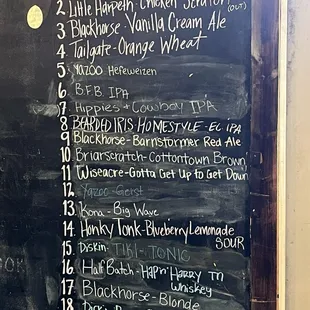 2 Little Harpeth - Chicken Scratch (OUT)
3 Blackhorse - Vanilla Cream Ale
4 Tailgate - Orange Wheat
5 Yazoo Hefeweizen
6 B.F.B. IPA
7 Hippies + Cowboy IPA
8 BEARDED IRIS HOMESTYLE - EC IPA
9 Blackhorse - Barnstormer Red Ale
10 Briarscratch - Cottontown Brown
11 Wiseacre - Gotta Get Up to Get Down
12 Yazoo - Geist
13 Kona - Big Wave
14 Honky Tonk - Blueberry Lemonade
SOUR
15 Diskin - TIKI - TONIC
16 Half Batch - Hap n' Harry TN
Whiskey
17 Blackhorse - Blonde
18